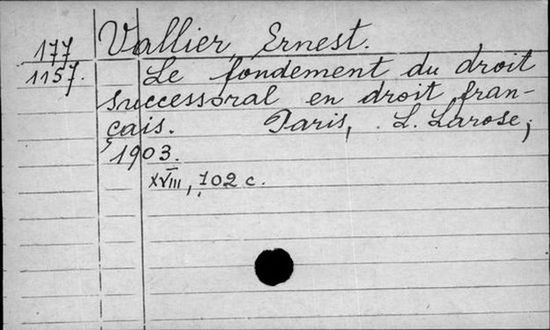 177 Vallier, Ernest.
1157. Le fondement du droit
successoral en droit fran-
çais. Paris, L. Larose,
1903.
XVIII, 702 c.